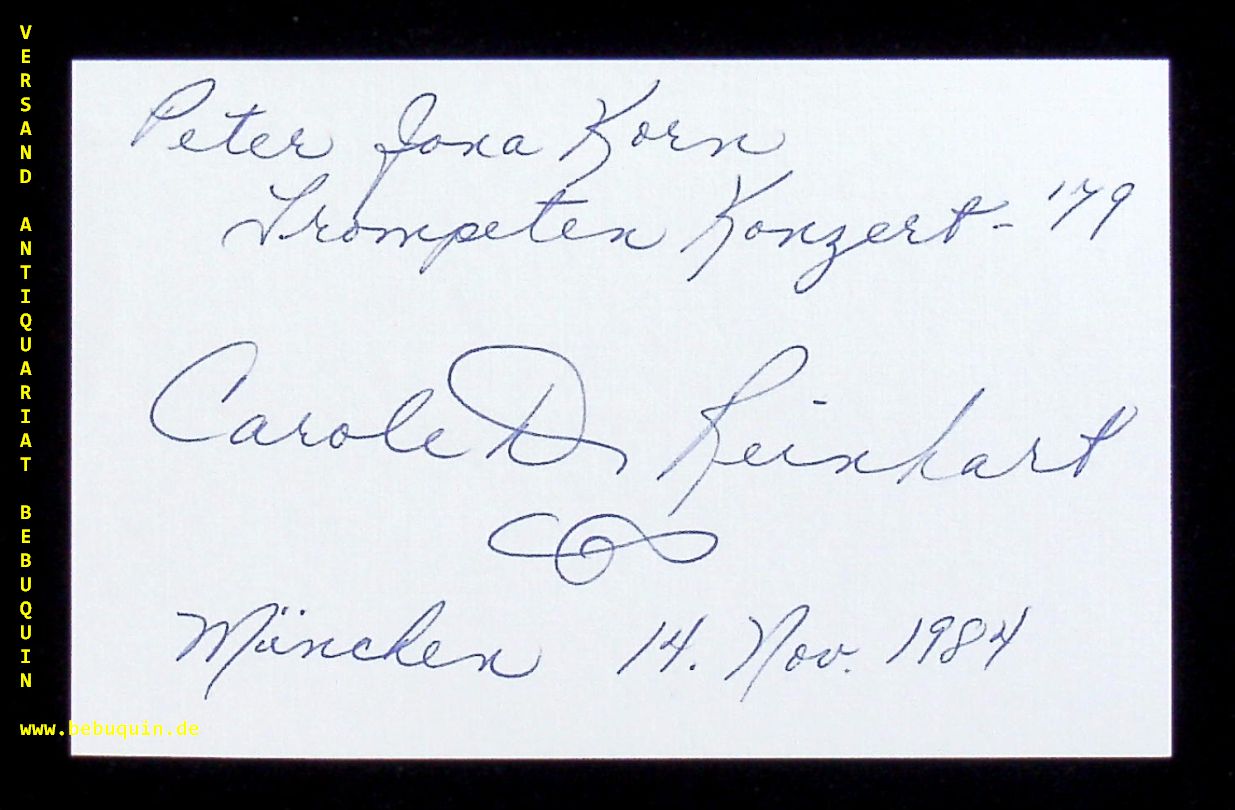 VERSAND ANTIQUARIAT BEBUQUIN
Peter Jona Korn
Trompeten Konzert - '79
Carole D Reinhart
München 14. Nov. 1984
www.bebuquin.de